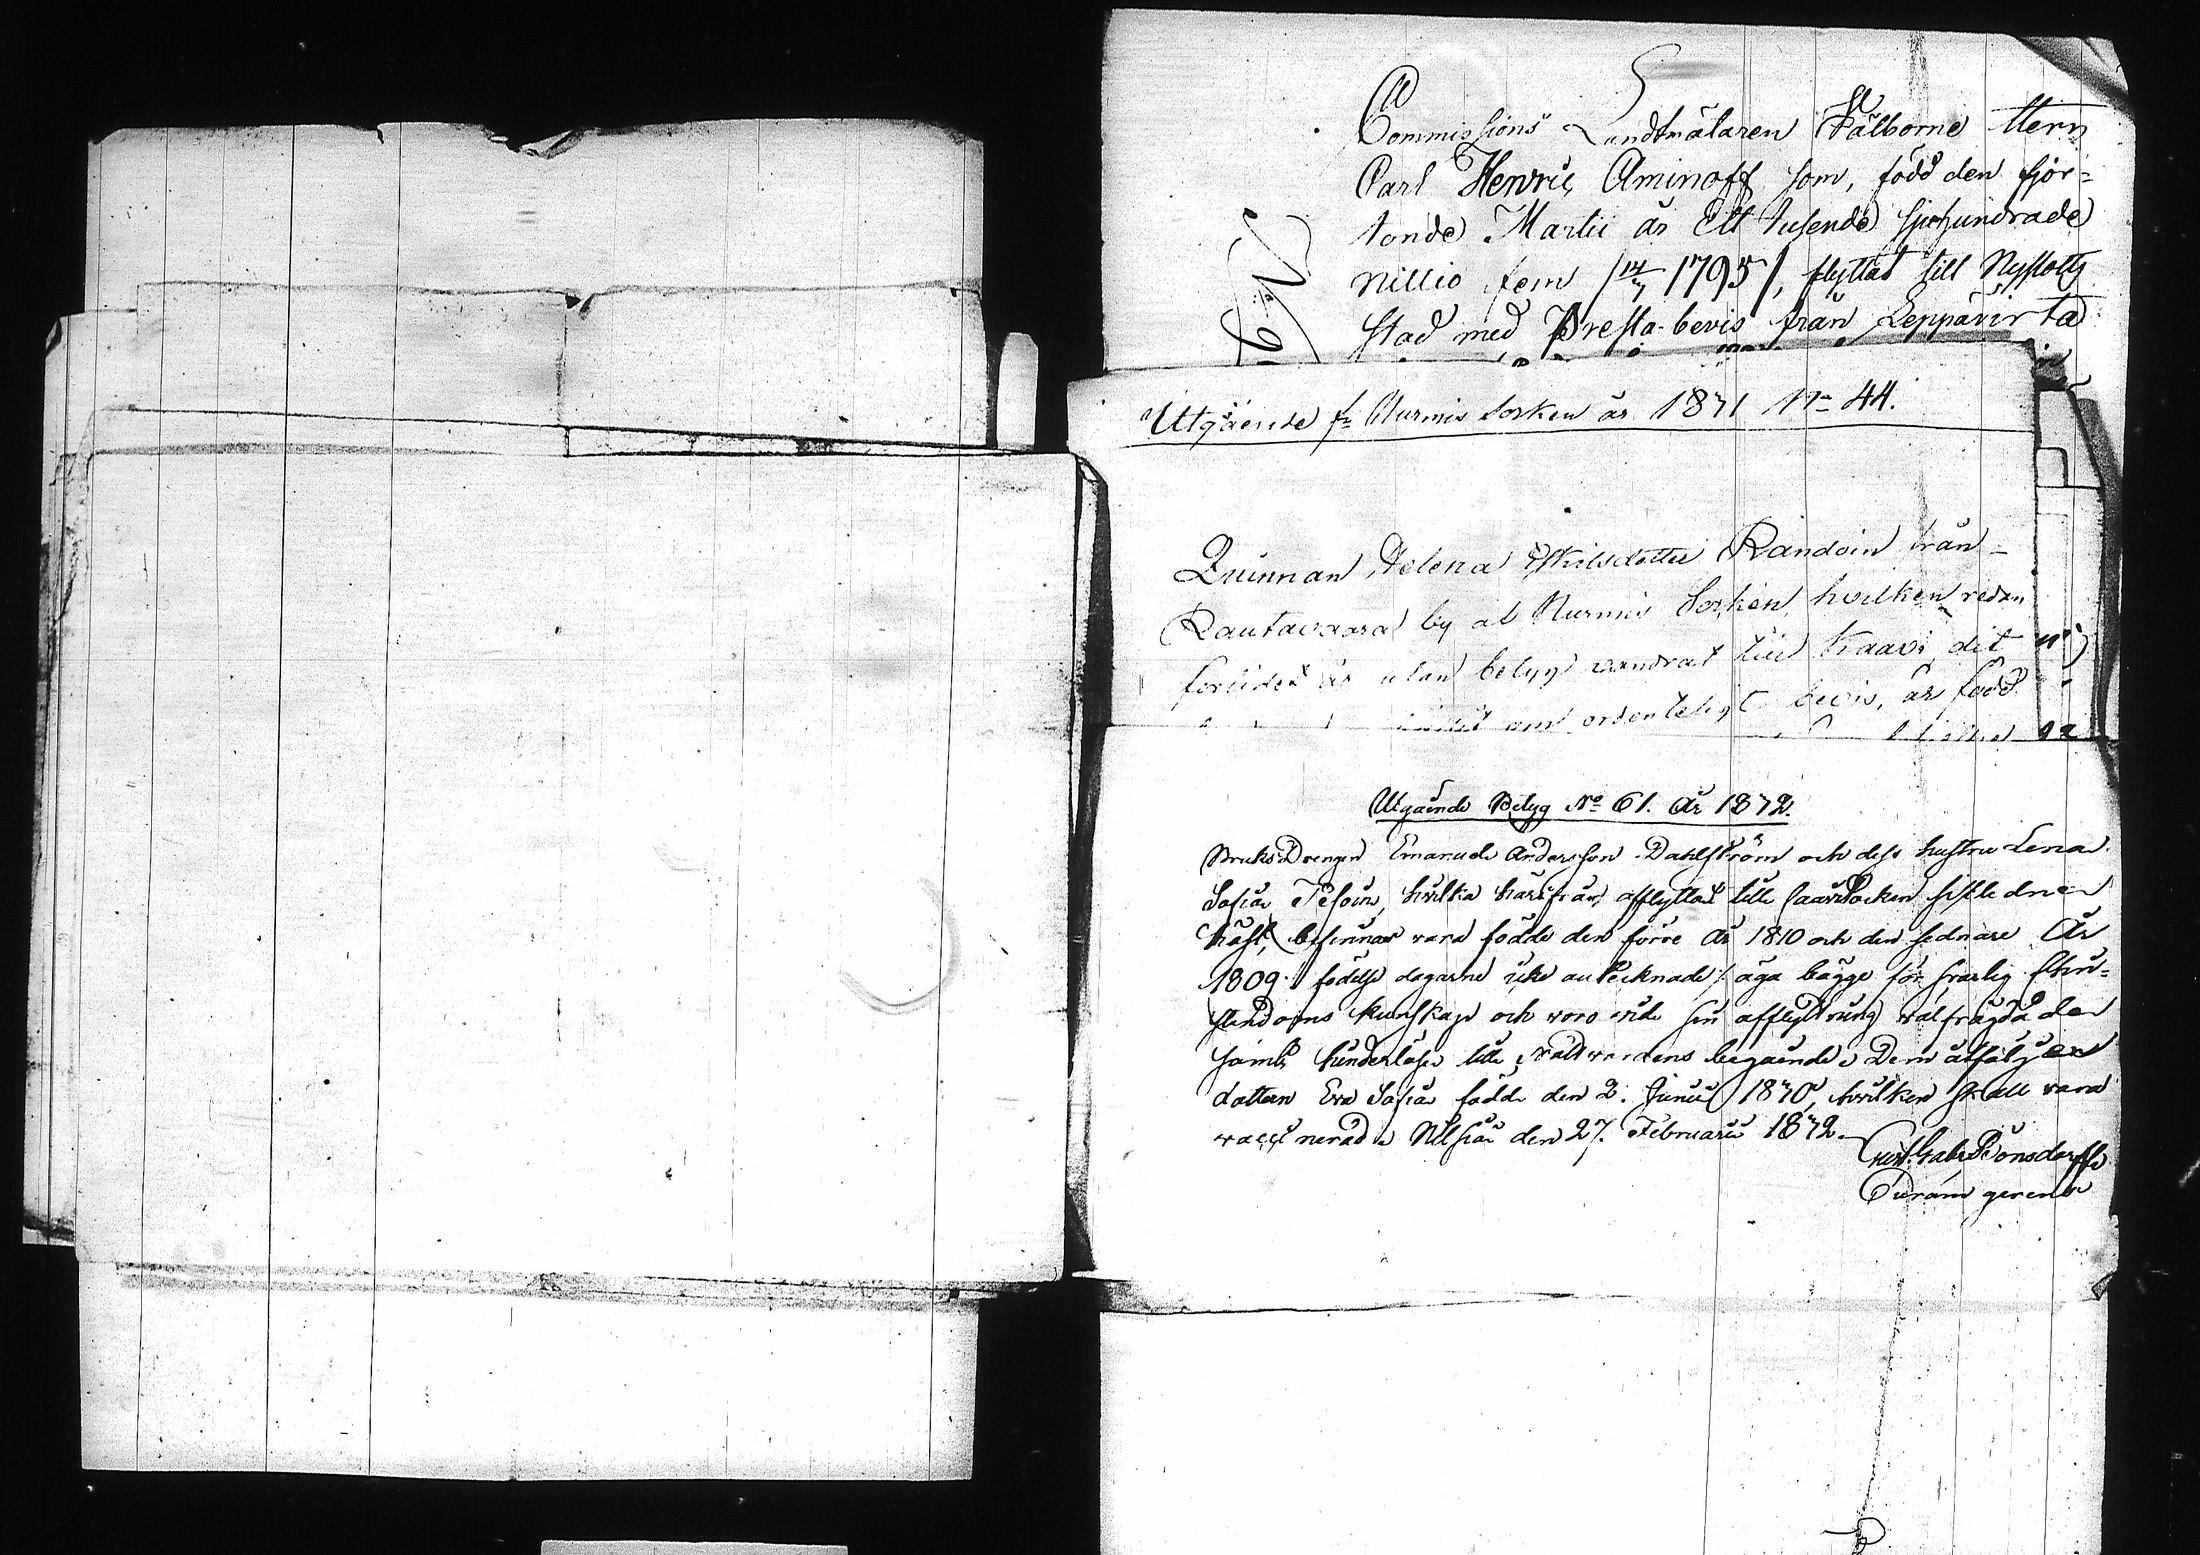 Commissions Landtmätaren Välborne Herr
Carl Henric Aminoff som, född den fjor-
tonde Martii år Ett tusende sjuhundrade
nittio fem /14/3 1795/, flyttat till Nyslotts
stad med Presta-bevis från Leppävirta
Utgående fr. Nurmis Socken år 1871 No 44.
Qvinnan Helena Eskilsdotter from
Rautavaara by af Nurmis Socken, hvilken redan
förlidet år utan betyg vandrat till Kaavi, dit
om ordenteligt bevis, är född
Utgående Betyg No 61. År 1872.
Bruks Drengen Emanuel Andersson Dahlström och dess hustru Lena
Sofia hvilka härifrån afflyttat till Kaavi Socken sistledne
höst, befinnas vara födde den förre År 1810 och den sednare År
1809 /: födelse dagarne icke antecknade :/ äga bägge försvarlig Chri-
stendoms kunskap och voro vid sin afflyttning välfrägdade
samt hinderlöse till Nattvardens begående. Dem åtföljer
dottern Eva Sofia född den 2. Junii 1870, hvilken skall vara
vaccinerad. Nilsiä den 27. Februarii 1872.
Gabr. Bonsdorff